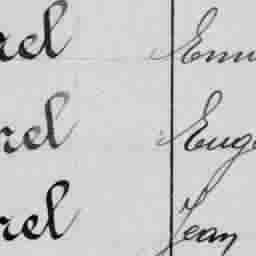 rel Emi
rel Euge
rel Jean